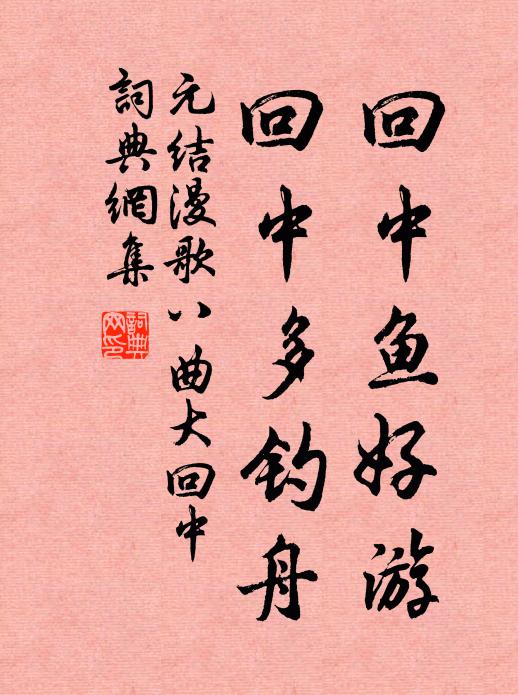 回中鱼好游
回中多钓舟
元结漫歌八曲大回中
詞典網集
詞典
网印